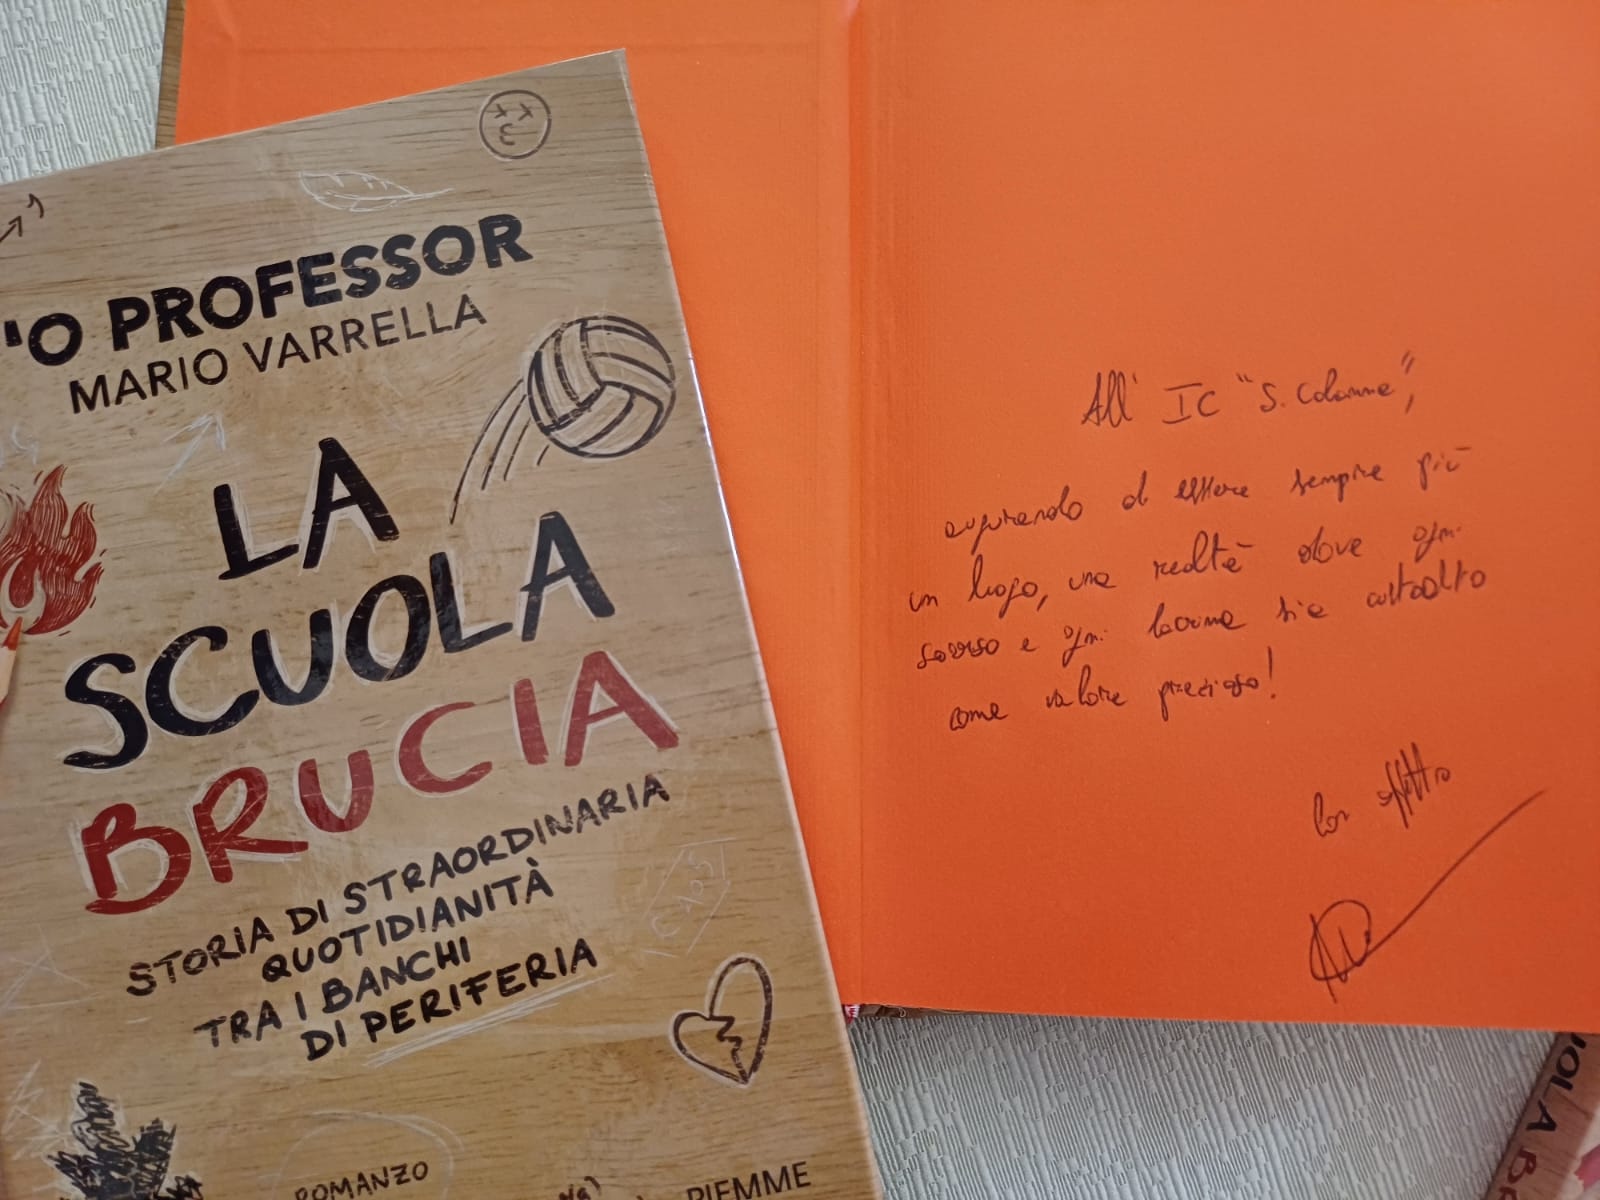 'O PROFESSOR
MARIO VARRELLA
LA
SCUOLA
BRUCIA
STORIA DI STRAORDINARIA
QUOTIDIANITÀ
TRA I BANCHI
DI PERIFERIA
CAOS
ROMANZO
PIEMME
All' IC "S. Colonna",
augurando di essere sempre più
un luogo, una realtà dove ogni
sorriso e ogni lacrima sia custodito
come valore prezioso!
Con affetto
UOLA BR